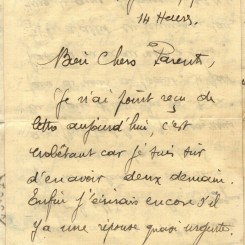 14 Heures.
Bien Chers Parents,
Je n'ai point reçu de
lettre aujourd'hui, c'est
embêtant car je suis sûr
d'en avoir deux demain.
Enfin j'écrirais encore s'il
y a une réponse quasi urgente.